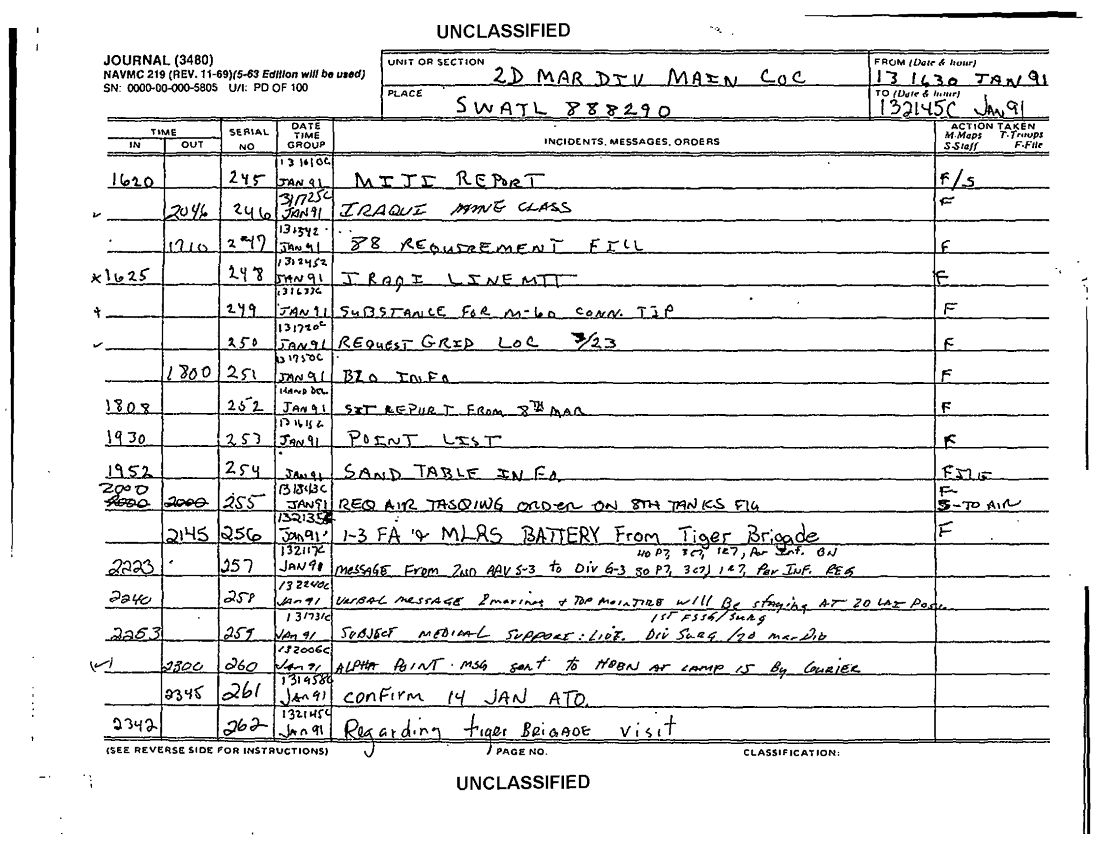 UNCLASSIFIED
JOURNAL (3480)
NAVMC 219 (REV. 11-69)(5-63 Edition will be used)
SN: 0000-00-000-5805 U/I: PD OF 100
UNIT OR SECTION 2D MAR DIV MAIN COC
PLACE SWATL 888290
FROM (Date & hour) 13 1630 JAN 91
TO (Date & hour) 132145C Jan 91
TIME IN OUT SERIAL NO DATE TIME GROUP INCIDENTS, MESSAGES, ORDERS ACTION TAKEN M-Maps T-Troops S-Staff F-File
1620 245 131610C JAN 91 MIJI REPORT F/S
2046 246 31725C JAN 91 IRAQUI MINE CLASS F
1710 247 131542 JAN 91 88 REQUIREMENT FILL F
*1625 248 1312452 JAN 91 IRAQI LINE F
249 131633C JAN 91 SUBSTANCE FOR M-60 CONN. TIP F
250 131720C JAN 91 REQUEST GRID LOC 3/23 F
1800 251 131750C JAN 91 INFO F
1808 252 HAND DEL JAN 91 SIT REPORT FROM 8TH MAR F
1930 253 JAN 91 POINT LIST F
1952 254 JAN 91 SAND TABLE INFO. FILE
2000 2000 2000 255 131843C JAN 91 REQ AIR TASQING ORDER ON 8TH TANKS FIG F S-TO AIR
2145 256 132135C Jan 91 1-3 FA & MLRS BATTERY From Tiger Brigade F
40 P7, 3c7, 127, Per Inf. BN
2223 257 132117C JAN 91 MESSAGE From 2ND AAV S-3 to Div G-3 30 P7, 3c7, 127, Per INF. REG
2240 258 132240C Jan 91 VERBAL MESSAGE 2marines & TOP McINTIRE will Be staying AT 2D LAI Posn.
1ST FSSG/SURG
2253 259 131731C JAN 91 SUBJECT MEDICAL SUPPORT: Div Surg /2D Mar Div
2300 260 132006C Jan 91 ALPHA POINT MSG sent to HQBN AT CAMP 15 By COURIER
2345 261 131958C Jan 91 CONFIRM 14 JAN ATO.
2342 262 132145C Jan 91 Regarding tiger BRIGADE visit
(SEE REVERSE SIDE FOR INSTRUCTIONS) PAGE NO. CLASSIFICATION:
UNCLASSIFIED